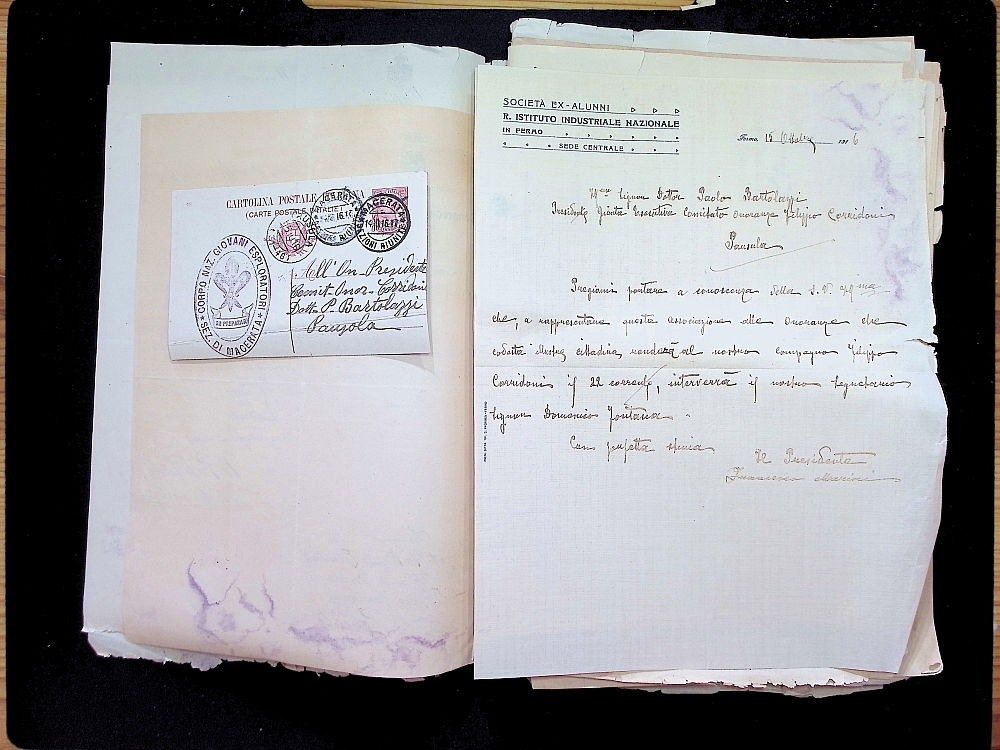 CARTOLINA POSTALE
(CARTE POSTALE
CORPO NAZ. GIOVANI ESPLORATORI
SEZ. DI MACERATA
All'On. Presidente
Comit. Onor. Corridoni
Dott. P. Bartolazzi
Pausola
SOCIETÀ EX-ALUNNI
R. ISTITUTO INDUSTRIALE NAZIONALE
IN FERMO
SEDE CENTRALE
Fermo, 18 Ottobre 1916
Signor Dottor Paolo Bartolazzi
Presidente Giunta Esecutiva Comitato Onoranze Filippo Corridoni
Pausula
Pregiomi portare a conoscenza della S. V.
che, a rappresentare questa associazione alle Onoranze che
codesta illustre cittadina renderà al nostro compagno Filippo
Corridoni il 22 corrente, interverrà il nostro segretario
Signor Domenico Fontana.
Con perfetta stima
Il Presidente
Francesco